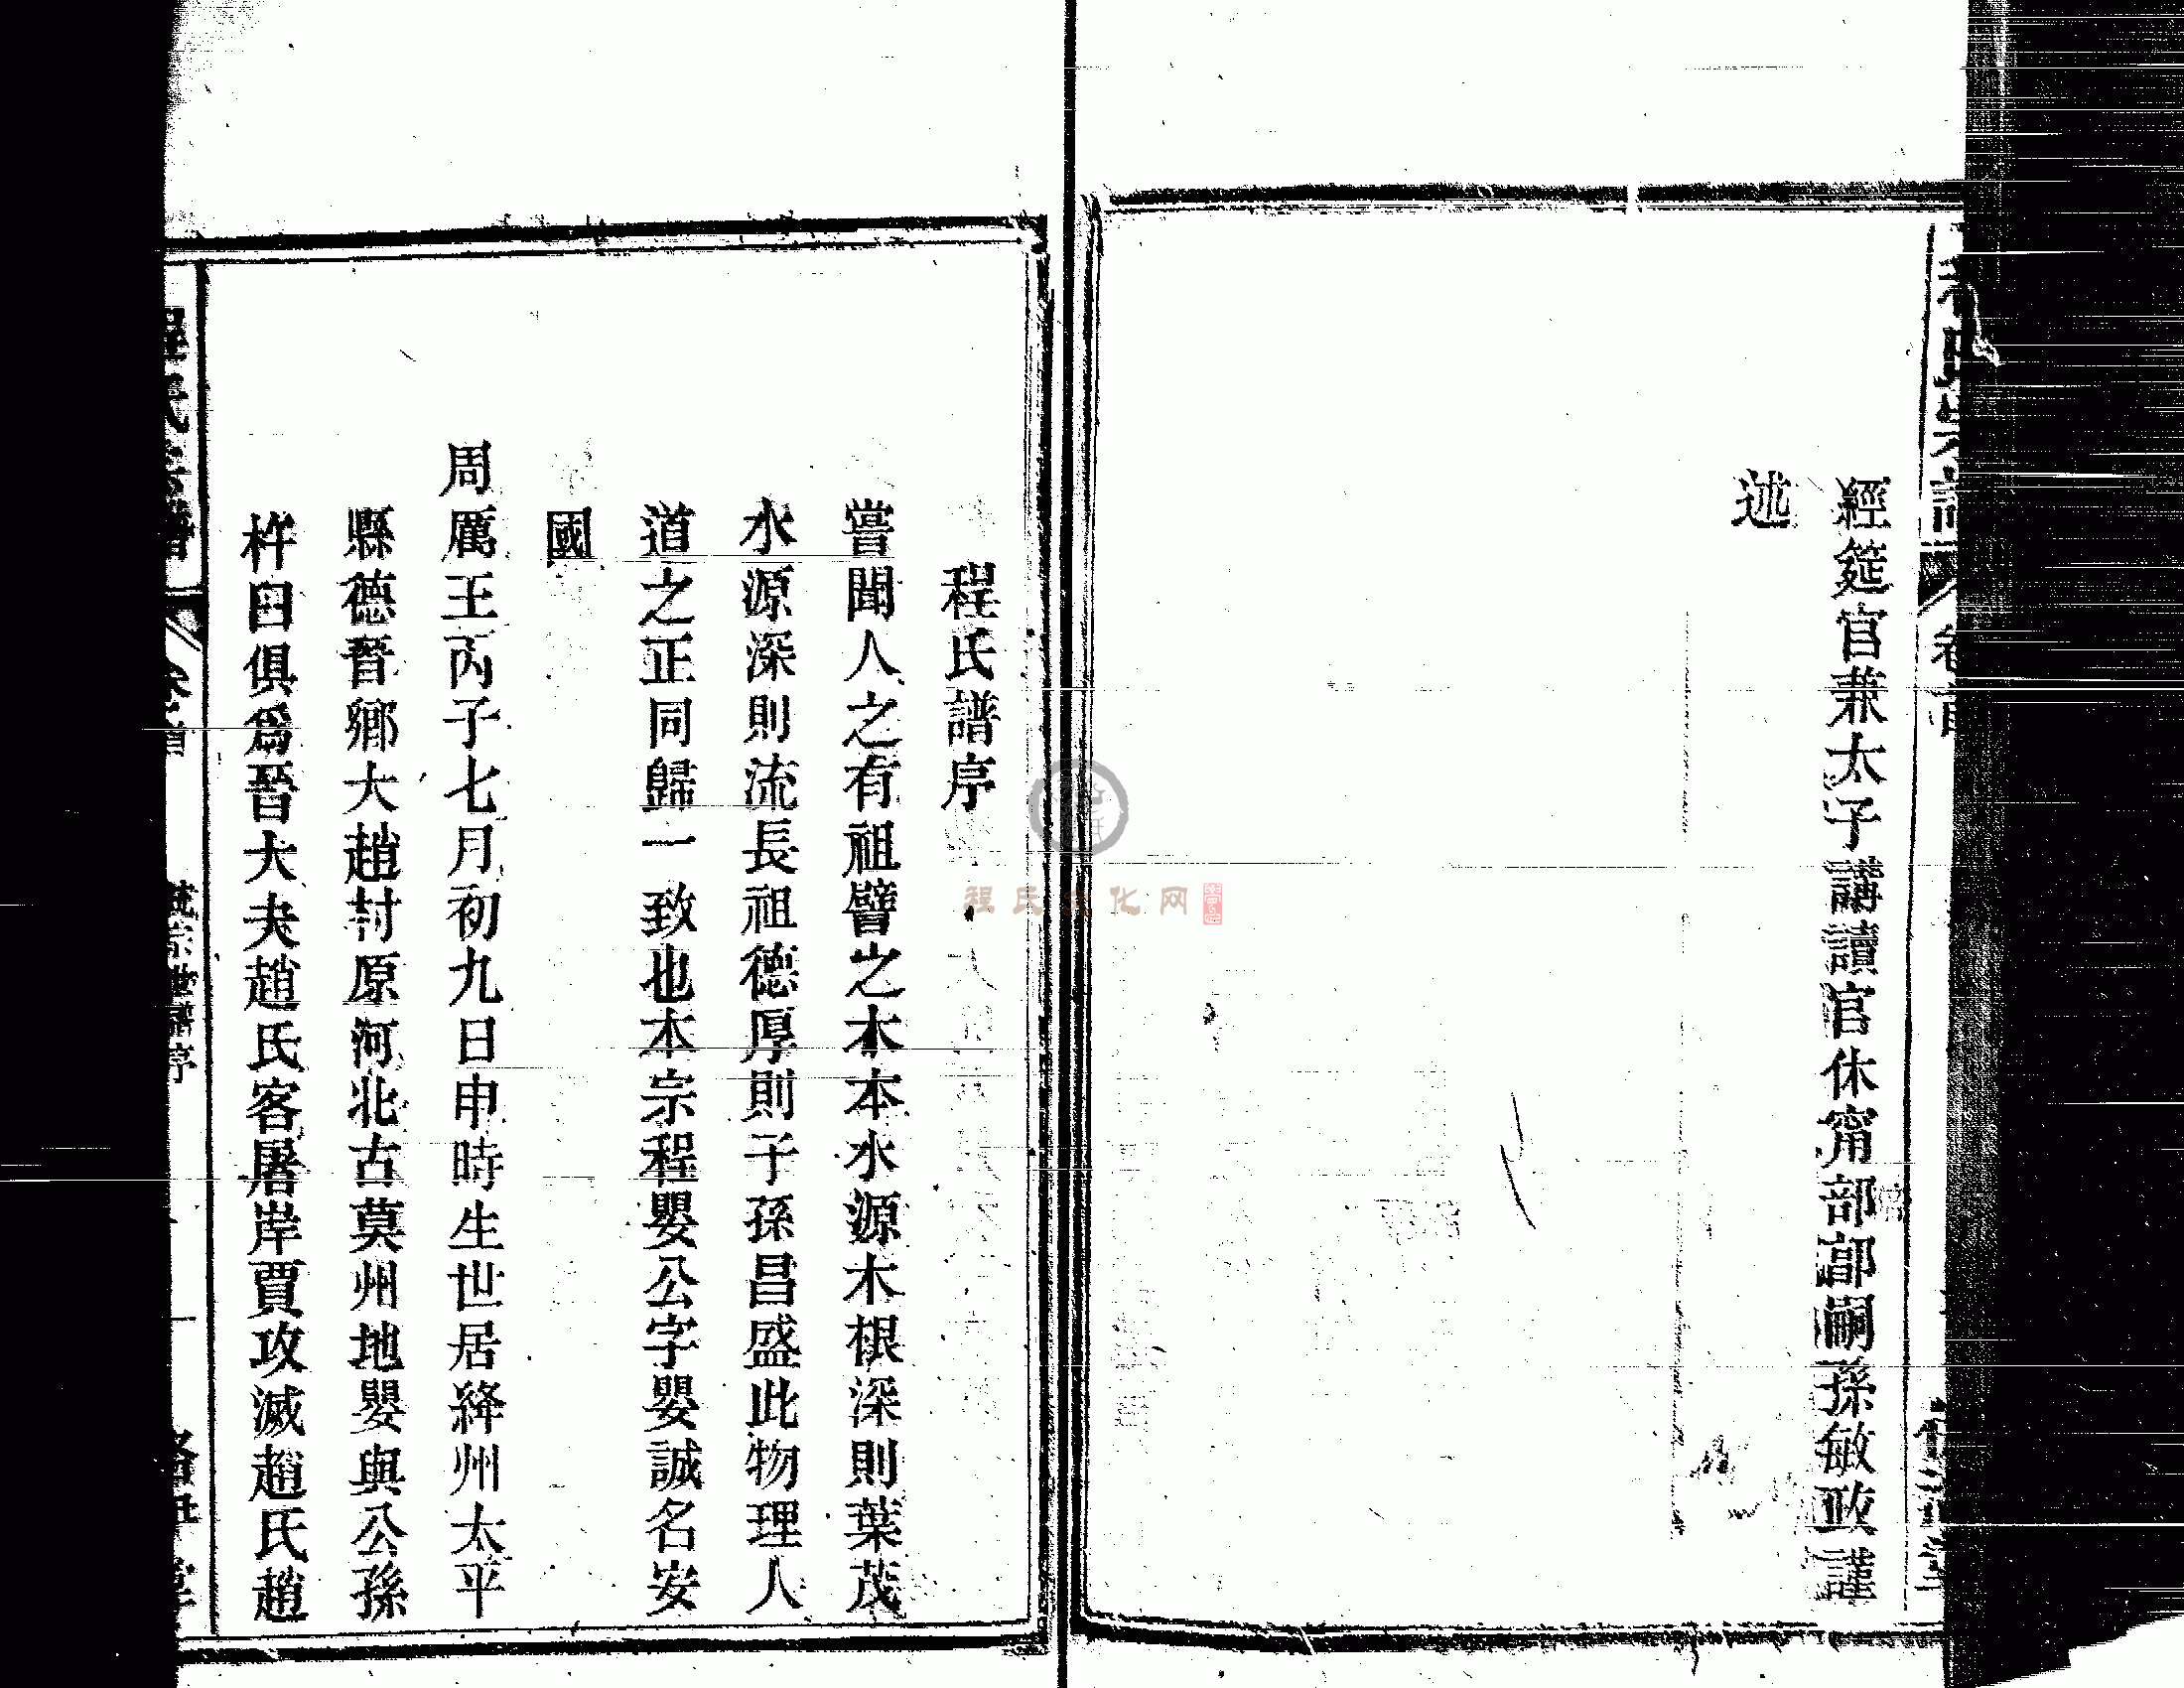 經筵官兼太子講讀官休甯部郎嗣孫敏政謹
述
程氏譜序
嘗聞人之有祖譬之木本水源木根深則葉茂
水源深則流長祖德厚則子孫昌盛此物理人
道之正同歸一致也本宗程嬰公字嬰誠名安
國
周厲王丙子七月初九日申時生世居絳州太平
縣德晉鄉大趙村原河北古莫州地嬰與公孫
杵臼俱爲晉大夫趙氏客屠岸賈攻滅趙氏趙
程氏宗譜
卷首
統宗世譜序
程氏文化网